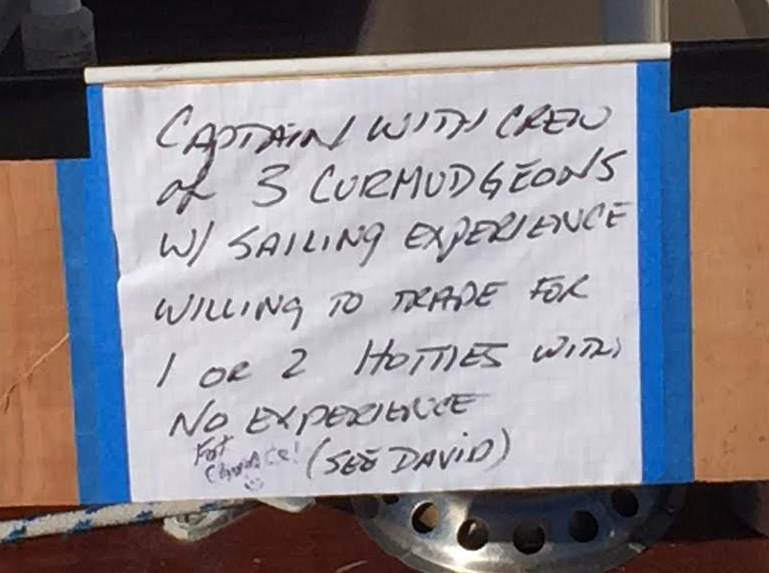 CAPTAIN WITH CREW
OF 3 CURMUDGEONS
W/ SAILING EXPERIENCE
WILLING TO TRADE FOR
1 OR 2 HOTTIES WITH
NO EXPERIENCE
Fat
Chance!
(SEE DAVID)